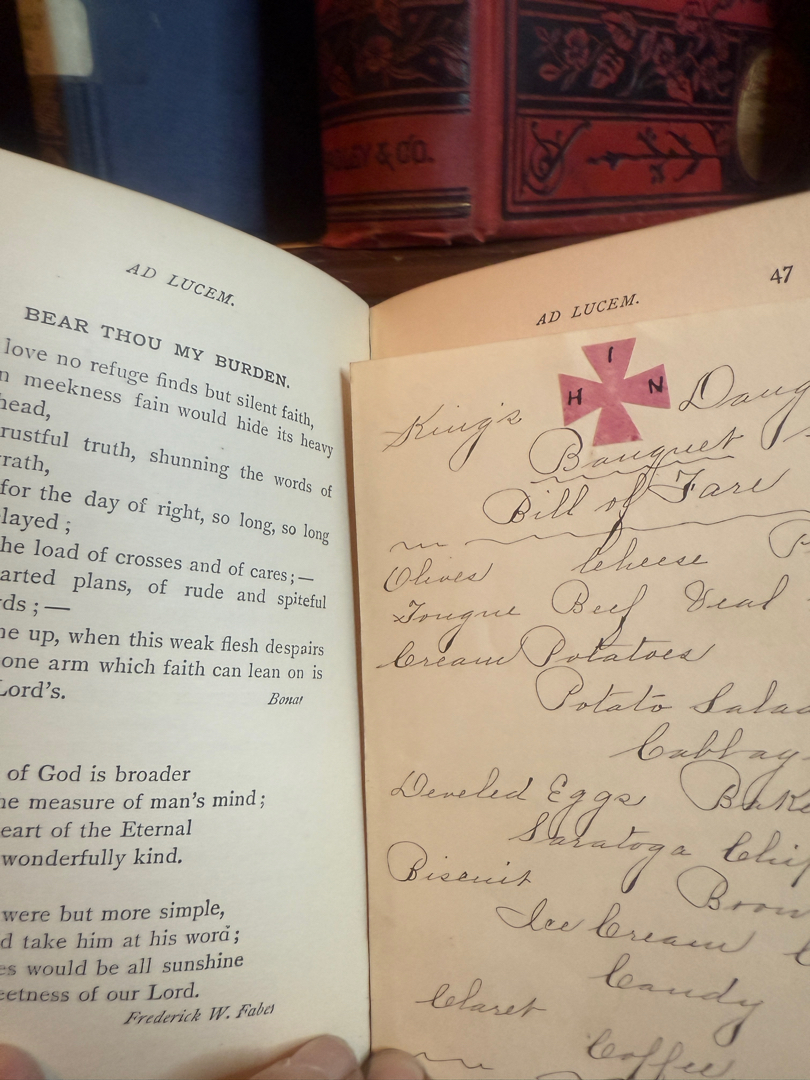 & CO.
AD LUCEM.
BEAR THOU MY BURDEN.
love no refuge finds but silent faith,
n meekness fain would hide its heavy
head,
rustful truth, shunning the words of
rath,
for the day of right, so long, so long
layed ;
he load of crosses and of cares ; —
arted plans, of rude and spiteful
ds ; —
ne up, when this weak flesh despairs
one arm which faith can lean on is
Lord's.
Bonar
of God is broader
he measure of man's mind ;
eart of the Eternal
wonderfully kind.
were but more simple,
d take him at his word ;
es would be all sunshine
eetness of our Lord.
Frederick W. Faber
AD LUCEM. 47
I
H N
King's Daug
Banquet
Bill of Fare
Olives Cheese P
Tongue Beef Veal
Cream Potatoes
Potato Salad
Cabbag
Develed Eggs Bake
Saratoga Chip
Biscuit Brow
Ice Cream C
Candy
Claret
Coffee